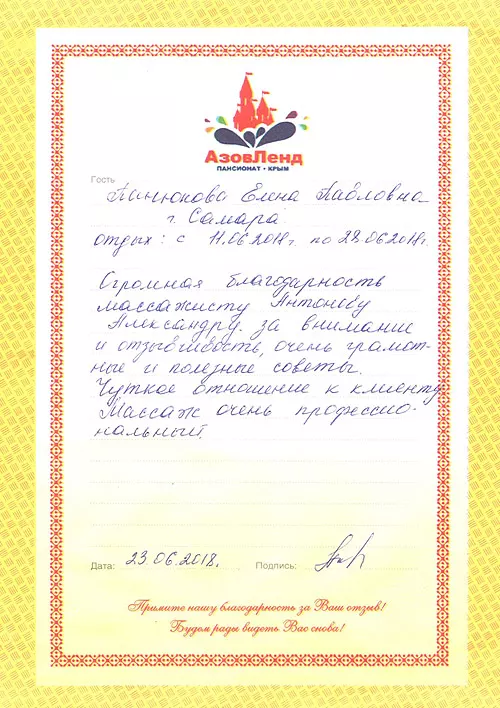 АзовЛенд
ПАНСИОНАТ • КРЫМ
Гость
Панюкова Елена Павловна
г. Самара
отдых: с 11.06.2018г. по 28.06.2018г.
Огромная благодарность
массажисту Антонову
Александру за внимание
и отзывчивость, очень грамот-
ные и полезные советы.
Чуткое отношение к клиенту.
Массаж очень профессио-
нальный.
Дата: 23.06.2018.
Подпись:
Примите нашу благодарность за Ваш отзыв!
Будем рады видеть Вас снова!